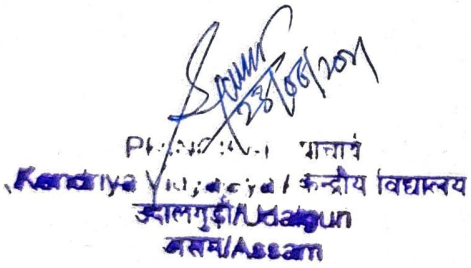 28/06/2021
प्राचार्य
Kendriya Vidyalaya केन्द्रीय विद्यालय
उदालगुड़ी/Udalguri
असम/Assam